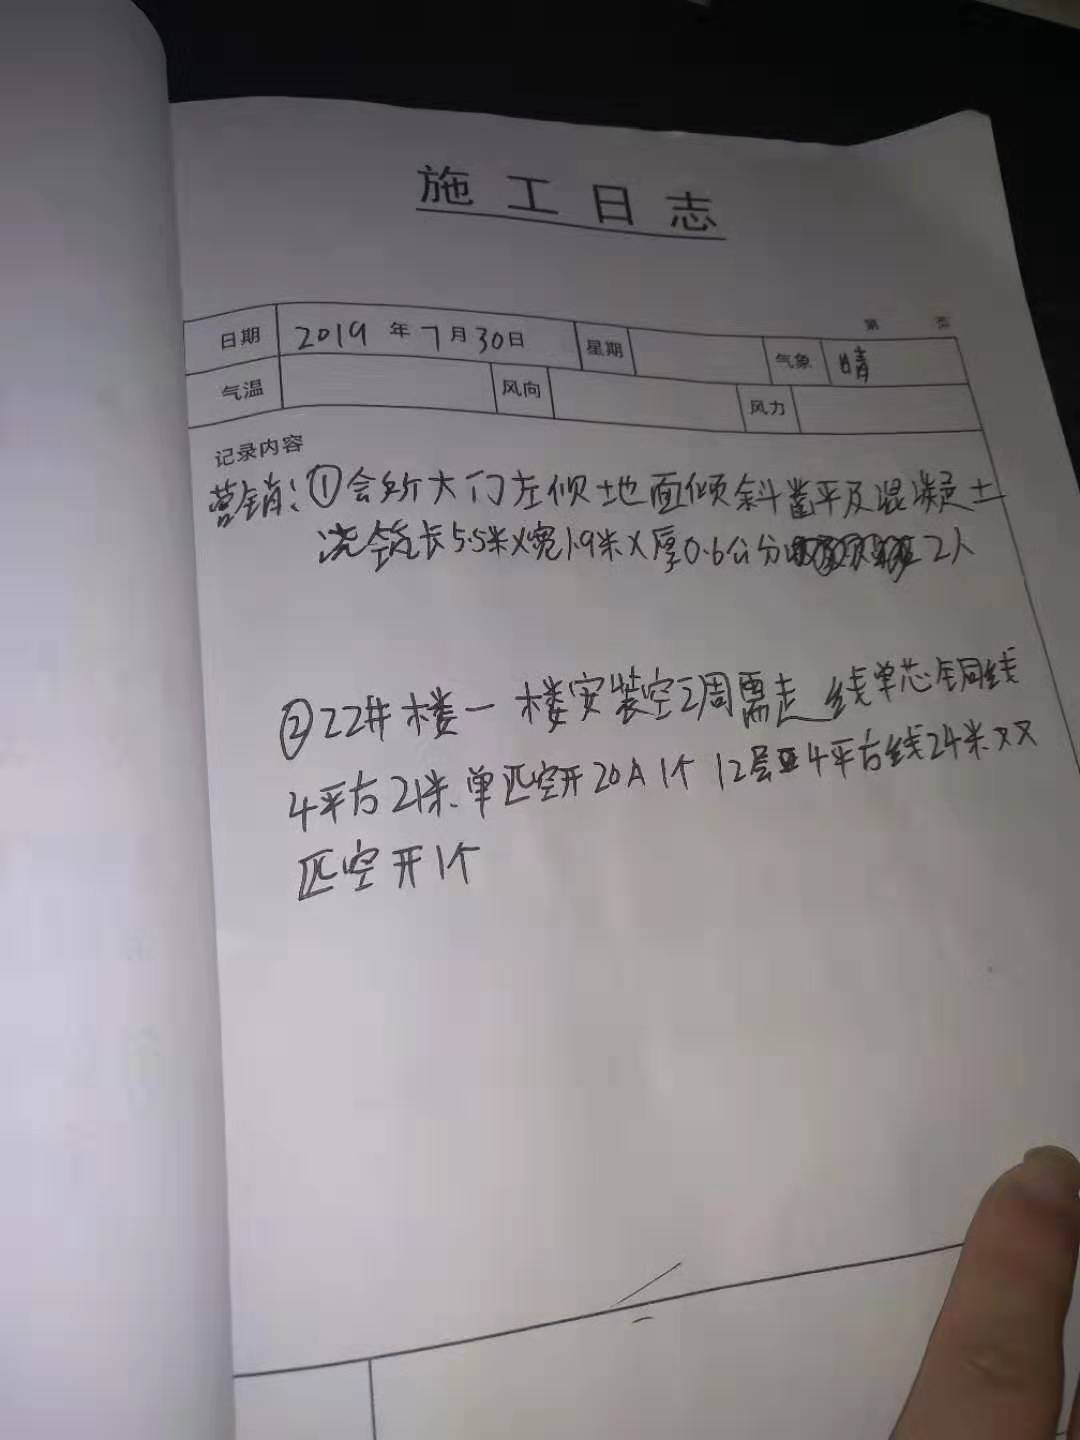 施工日志
第 页
日期 2019年7月30日 星期 气象 晴
气温 风向 风力
记录内容
营销:①会所大门左侧地面倾斜凿平及混凝土
浇筑长5.5米X宽1.9米X厚0.6公分 2人
②22井楼一楼安装空调需走线单芯铜线
4平方21米.单匹空开20A1个 12层 4平方线24米双
匹空开1个